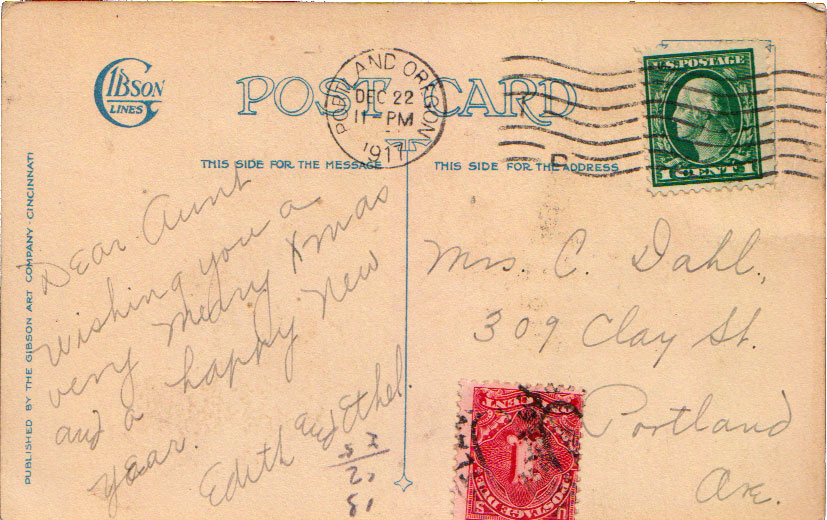 GIBSON
LINES
POST CARD
PORTLAND OREGON
DEC 22
11-PM
1917
U.S. POSTAGE
1 CENT 1
THIS SIDE FOR THE MESSAGE
THIS SIDE FOR THE ADDRESS
PUBLISHED BY THE GIBSON ART COMPANY - CINCINNATI
Dear Aunt
Wishing you a
very Merry Xmas
and a happy New
year.
Edith and Ethel.
Mrs. C. Dahl,
309 Clay St.
Portland
Ore.
POSTAGE DUE